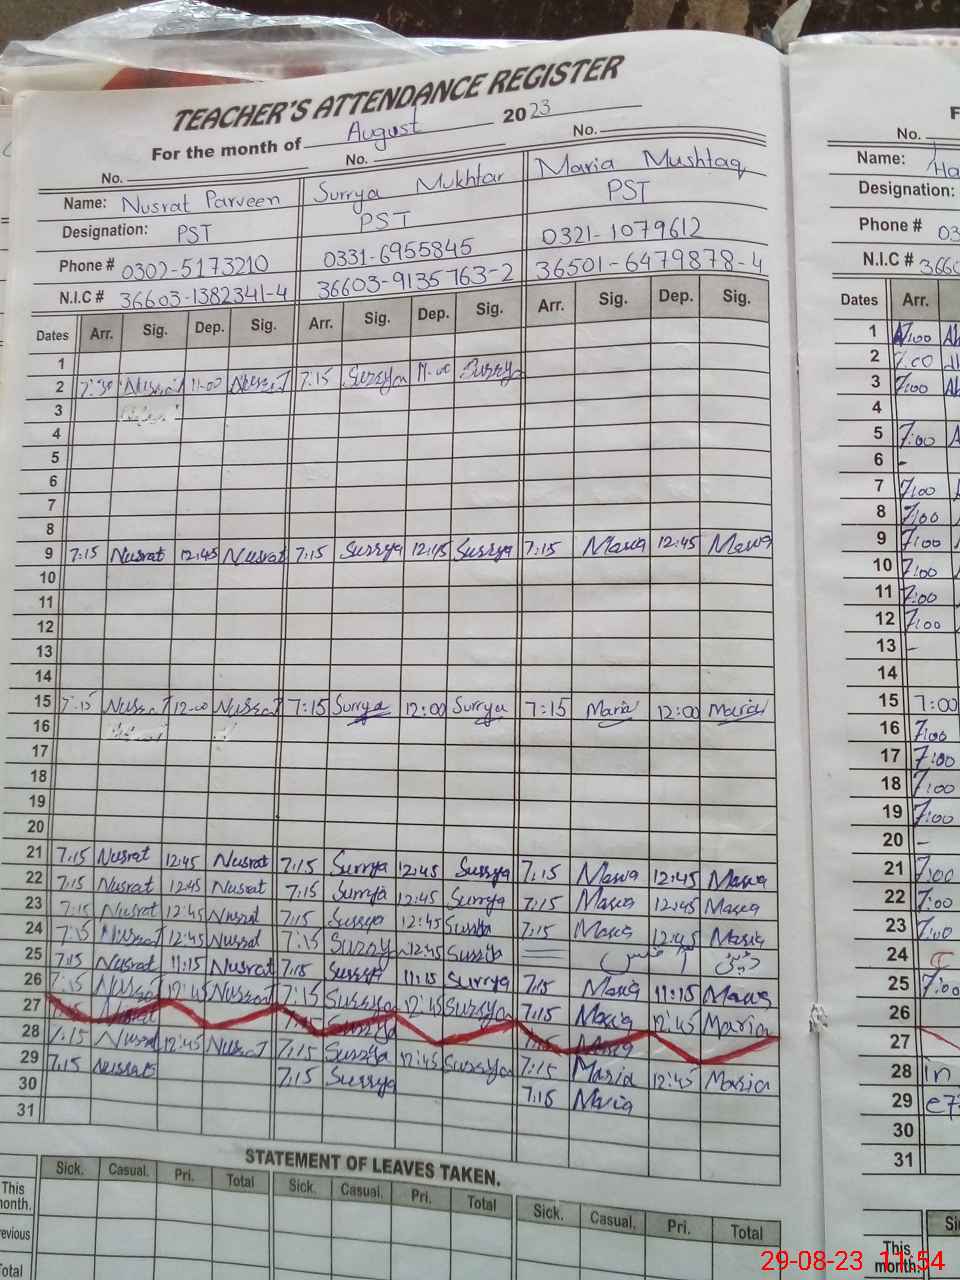 TEACHER'S ATTENDANCE REGISTER
For the month of August 2023
No. No. No.
Name: Nusrat Parveen Surrya Mukhtar Maria Mushtaq
Designation: PST PST PST
Phone # 0302-5173210 0331-6955845 0321-1079612
N.I.C # 36603-1382341-4 36603-9135763-2 36501-6479878-4
Dates Arr. Sig. Dep. Sig. Arr. Sig. Dep. Sig. Arr. Sig. Dep. Sig.
1
2 7:30 Nusrat 11-00 Nusrat 7:15 Surrya 11-00 Surrya
3
4
5
6
7
8
9 7:15 Nusrat 12:45 Nusrat 7:15 Surrya 12:45 Surrya 7:15 Maria 12:45 Maria
10
11
12
13
14
15 7:15 Nusrat 12-00 Nusrat 7:15 Surrya 12:00 Surrya 7:15 Maria 12:00 Maria
16
17
18
19
20
21 7:15 Nusrat 12:45 Nusrat 7:15 Surrya 12:45 Surrya 7:15 Maria 12:45 Maria
22 7:15 Nusrat 12:45 Nusrat 7:15 Surrya 12:45 Surrya 7:15 Maria 12:45 Maria
23 7:15 Nusrat 12:45 Nusrat 7:15 Surrya 12:45 Surrya 7:15 Maria 12:45 Maria
24 7:15 Nusrat 12:45 Nusrat 7:15 Surrya 12:45 Surrya
25 7:15 Nusrat 11:15 Nusrat 7:15 Surrya 11:15 Surrya 7:15 Maria 11:15 Maria
26 7:15 Nusrat 12:45 Nusrat 7:15 Surrya 12:45 Surrya 7:15 Maria 12:45 Maria
27 7:15 Nusrat 7:15 Surrya 7:15 Maria
28 7:15 Nusrat 12:45 Nusrat 7:15 Surrya 12:45 Surrya 7:15 Maria 12:45 Maria
29 7:15 Nusrat 7:15 Surrya 7:15 Maria
30
31
STATEMENT OF LEAVES TAKEN.
Sick. Casual. Pri. Total Sick. Casual. Pri. Total Sick. Casual. Pri. Total
This
month.
Previous
Total
F
No.
Name: Ha
Designation:
Phone # 03
N.I.C # 3660
Dates Arr.
1 7:00
2 7:00
3 7:00
4
5 7:00
6 -
7 7:00
8 7:00
9 7:00
10 7:00
11 7:00
12 7:00
13 -
14
15 7:00
16 7:00
17 7:00
18 7:00
19 7:00
20 -
21 7:00
22 7:00
23 7:00
24
25 7:00
26
27
28 in
29
30
31
Si
This
month.
29-08-23 11:54